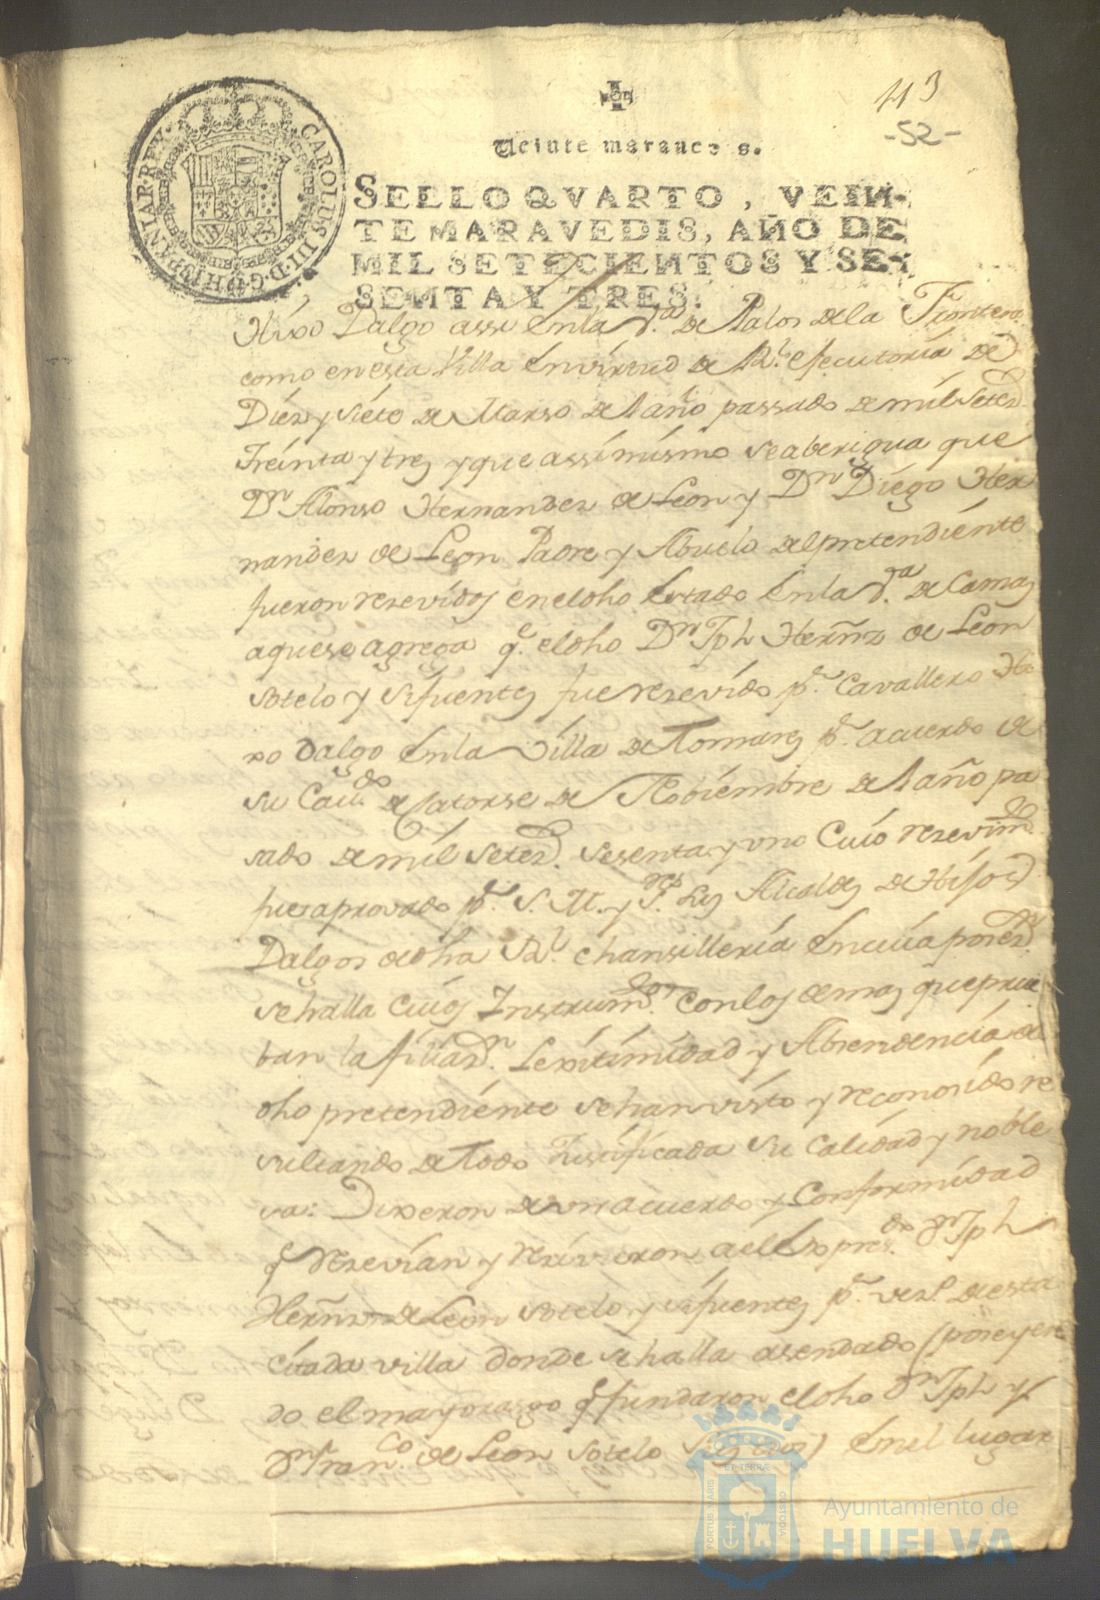 113
-52-
CAROLUS III D.G. HISPANIAR. REX.
Veinte maravedis.
SELLO QVARTO, VEIN-
TE MARAVEDIS, AÑO DE
MIL SETECIENTOS Y SE-
SENTA Y TRES.
Hixo Dalgo assi en la va. de Palos de la Frontera
como en esta Villa en virtud de Rl. ejecutoria de
Diez y siete de Marso del año passado de mil Setezs.
treinta y tres y que assimismo se aberigua que
Dn. Alonso Hernandez de Leon y Dn. Diego Her
nandez de Leon Padre y Abuelo del pretendiente
fueron resevidos en el dho Estado en la va. de Camas
a que se agrega q. el dho Dn. Jph Hernz de Leon
Sotelo y Sifuentes fue resevido pr. Cavallero Hi
xo dalgo en la Villa de Tomares pr. acuerdo de
su Cavdo. de Catorse de Nobiembre del año pa
sado de mil Setezs. sesenta y uno Cuio resevimto.
fue aprovado pr. S. M. y Sres. Los Alcaldes de Hijos
Dalgos de dha Rl. Chansilleria en cuia
se halla Cuios Instrumtos. con los demas que prue
ban la filiazn. Lexitimidad y Absendencia de
dho pretendiente se han visto y reconosido re
sultando de todo Justificada su Calidad y noble
za: Dixeron de un acuerdo y Conformidad
q resevian y resivieron a el Expresdo. Dn Jph
Hernz de Leon Sotelo y Sifuentes pr. veso. de esta
Citada villa donde se halla asendado (poseyen
do el mayorasgo q fundaron el dho Dn Jph y
Dn Franco. de Leon Sotelo) en el lugar
PORTUS MARIS
ET TERRÆ
CUSTODIA
Ayuntamiento de
HUELVA